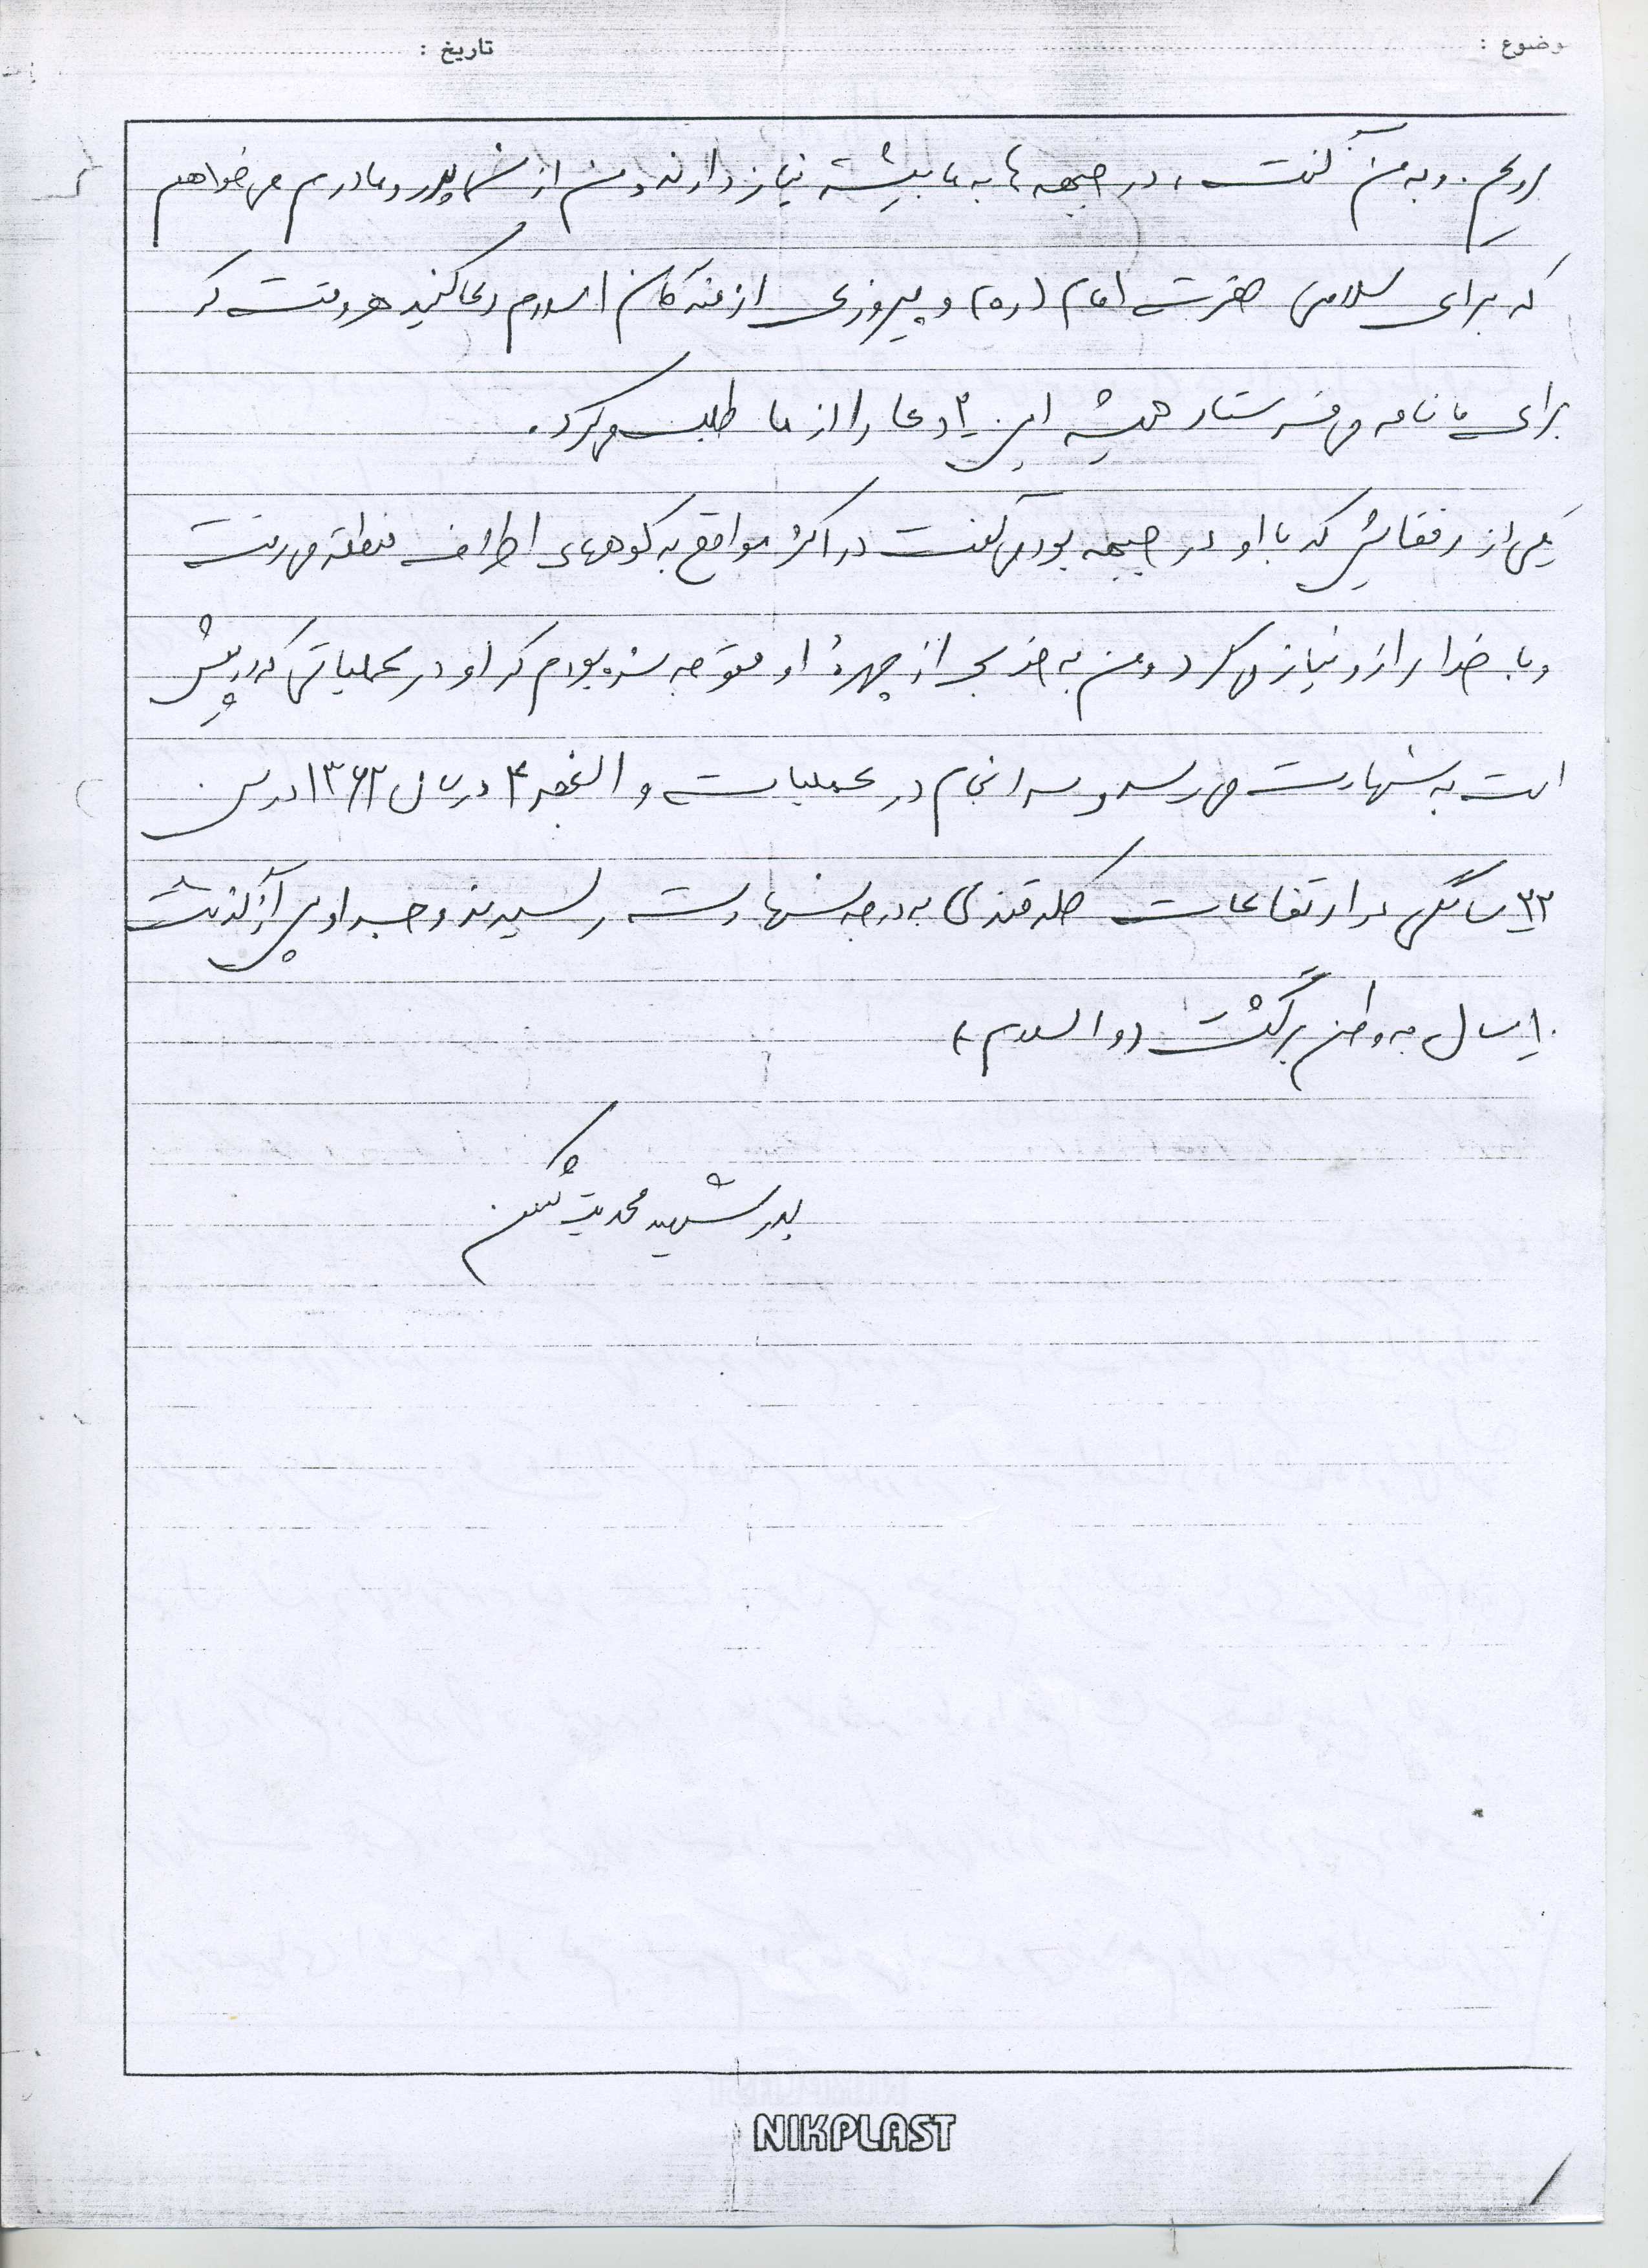 موضوع : تاریخ :
برویم. و به من گفت، در جبهه ها به ما بیشتر نیاز دارند و من از شما پدر و مادرم می خواهم
که برای سلامی حضرت امام (ره) و پیروزی رزمندگان اسلام دعا کنید هر وقت که
برای ما نامه می فرستاد همیشه این ۲ دعا را از ما طلب می کرد.
یکی از رفقایش که با او در جبهه بود می گفت در اکثر مواقع به کوههای اطراف منطقه می رفت
و با خدا راز و نیاز می کرد و من به خوبی از چهرهٔ او متوجه شده بودم که او در عملیاتی که در پیش
است به شهادت می رسد و سرانجام در عملیات والفجر ۴ در سال ۱۳۶۲ در سن
۲۳ سالگی در ارتفاعات کله قندی به درجه شهادت رسیدند و جسد او پس از گذشت
۱۰ سال به وطن برگشت (والسلام)
پدر شهید محمد بت شکن
NIKPLAST